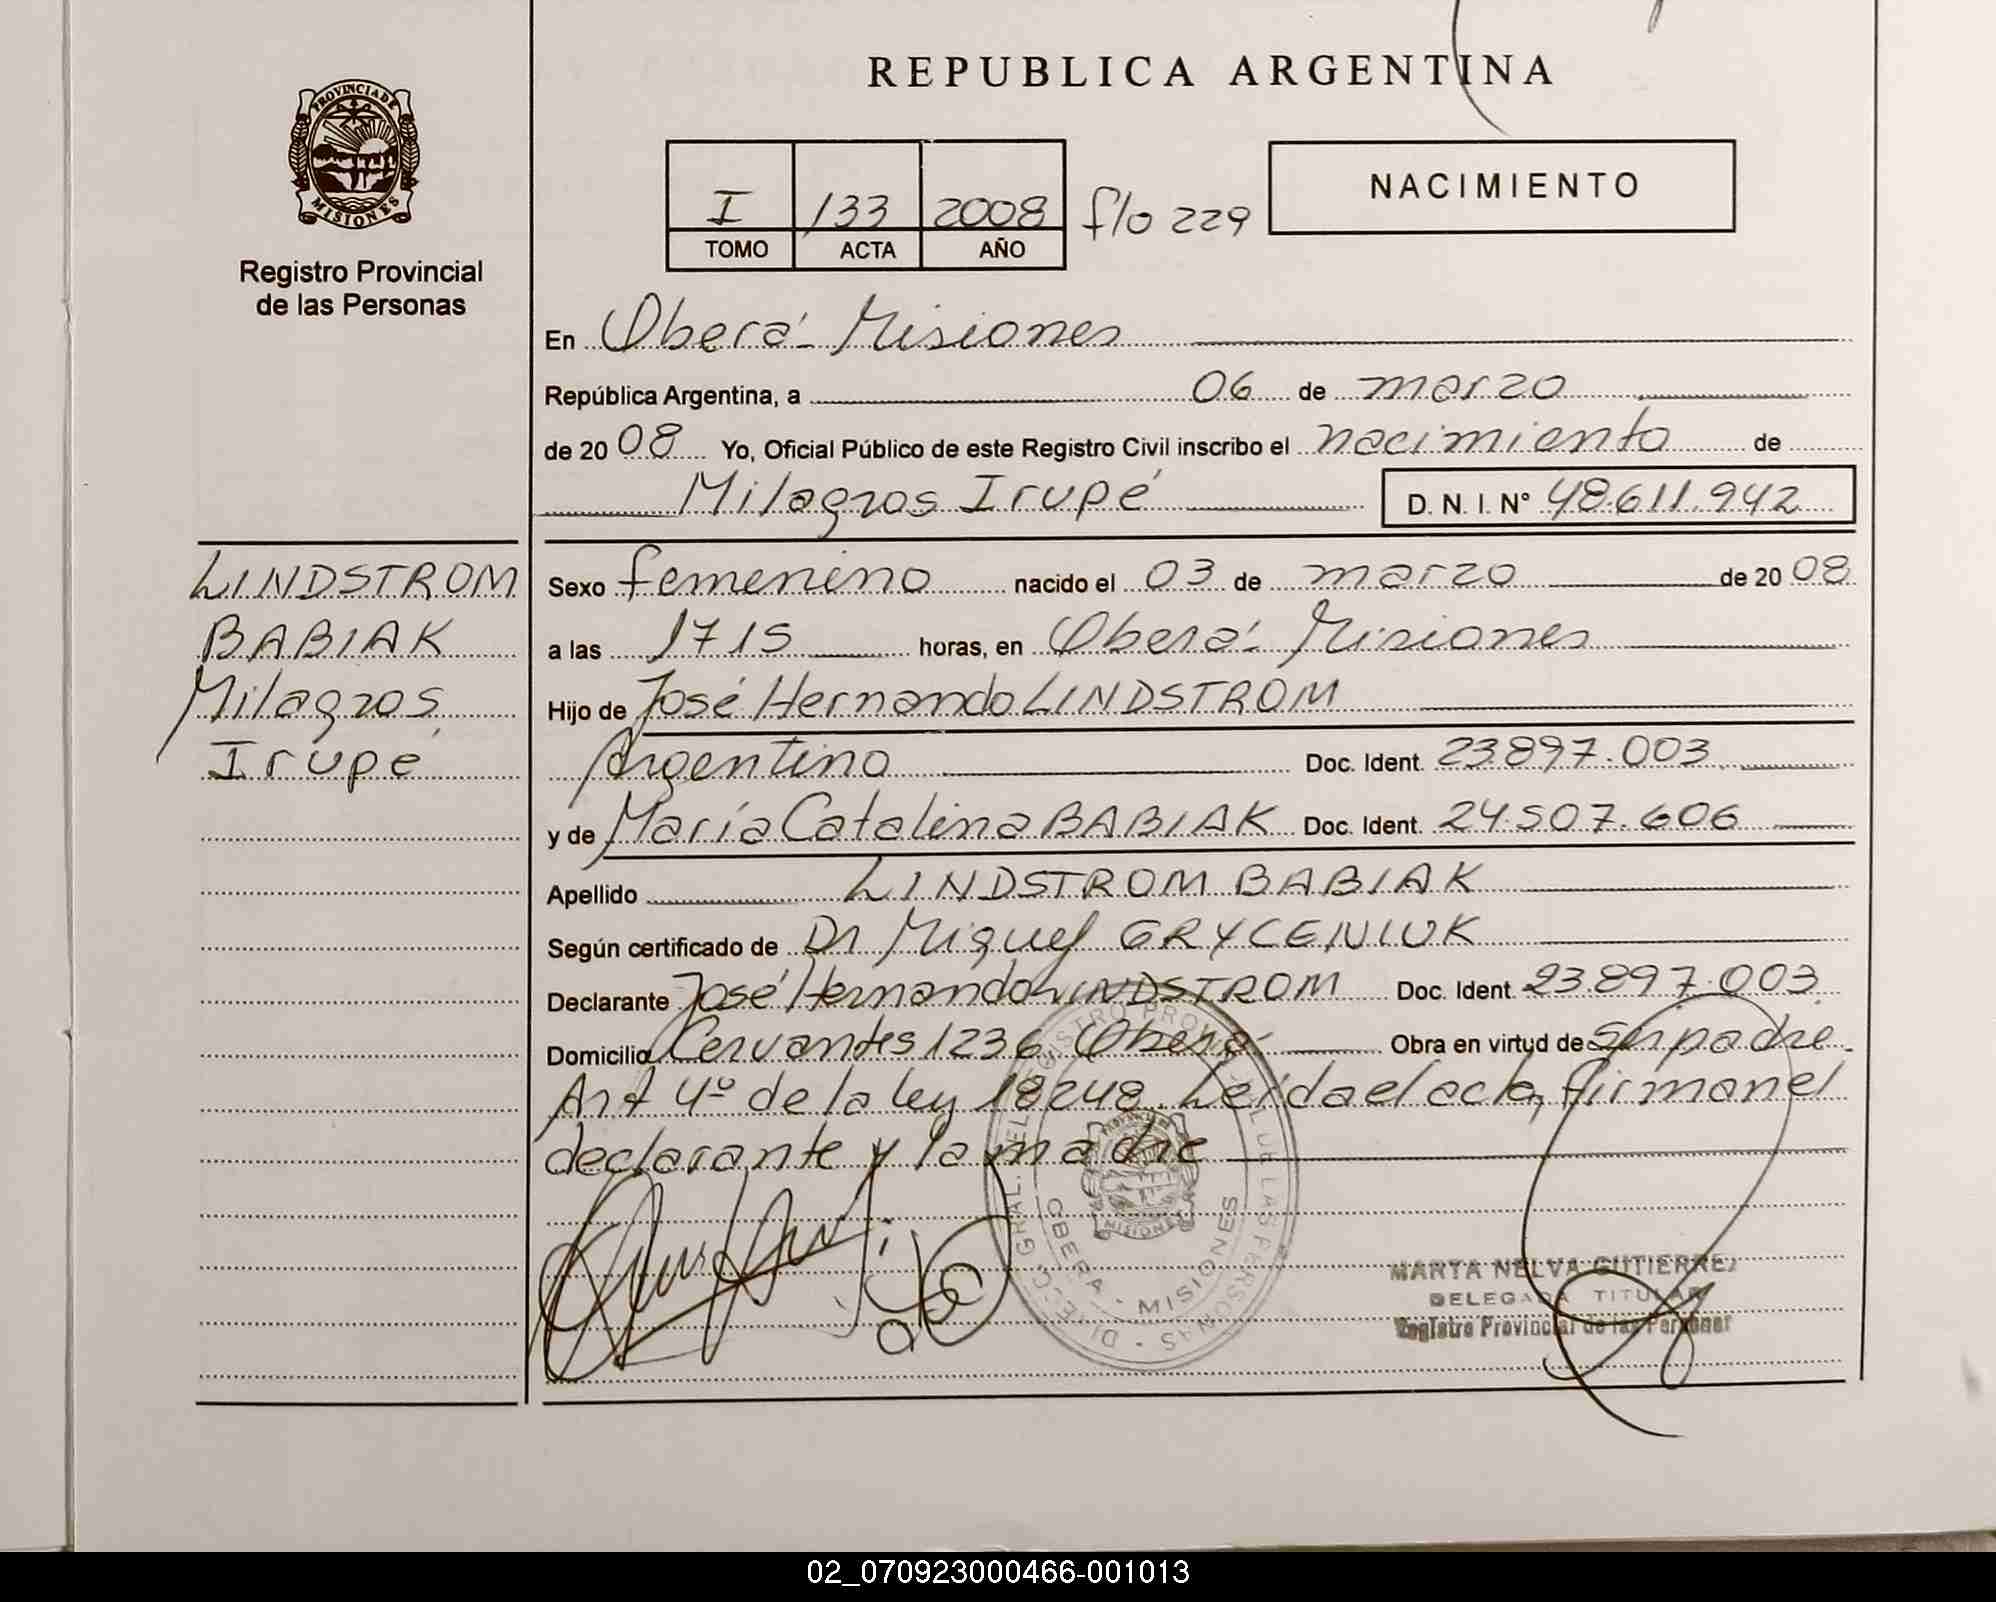 REPUBLICA ARGENTINA
PROVINCIA DE MISIONES
Registro Provincial
de las Personas
I 133 2008 f/o 229
TOMO ACTA AÑO
NACIMIENTO
En Oberá - Misiones
República Argentina, a 06 de marzo
de 20 08 Yo, Oficial Público de este Registro Civil inscribo el nacimiento de
Milagros Irupé D. N. I. N° 48.611.942
LINDSTROM
BABIAK
Milagros
Irupé
Sexo femenino nacido el 03 de marzo de 20 08
a las 1715 horas, en Oberá - Misiones
Hijo de José Hernando LINDSTROM
Argentino Doc. Ident. 23.897.003
y de María Catalina BABIAK Doc. Ident. 24.507.606
Apellido LINDSTROM BABIAK
Según certificado de Dr Miguel GRYCENIUK
Declarante José Hernando LINDSTROM Doc. Ident. 23.897.003
Domicilio Cervantes 1236 Oberá Obra en virtud de ser padre
Art 4º de la ley 18248. Leída el acta, firman el
declarante y la madre
MISIONES
OBERA - MISIONES
MARTA NELVA GUTIERREZ
DELEGADA TITULAR
Registro Provincial de las Personas
02_070923000466-001013